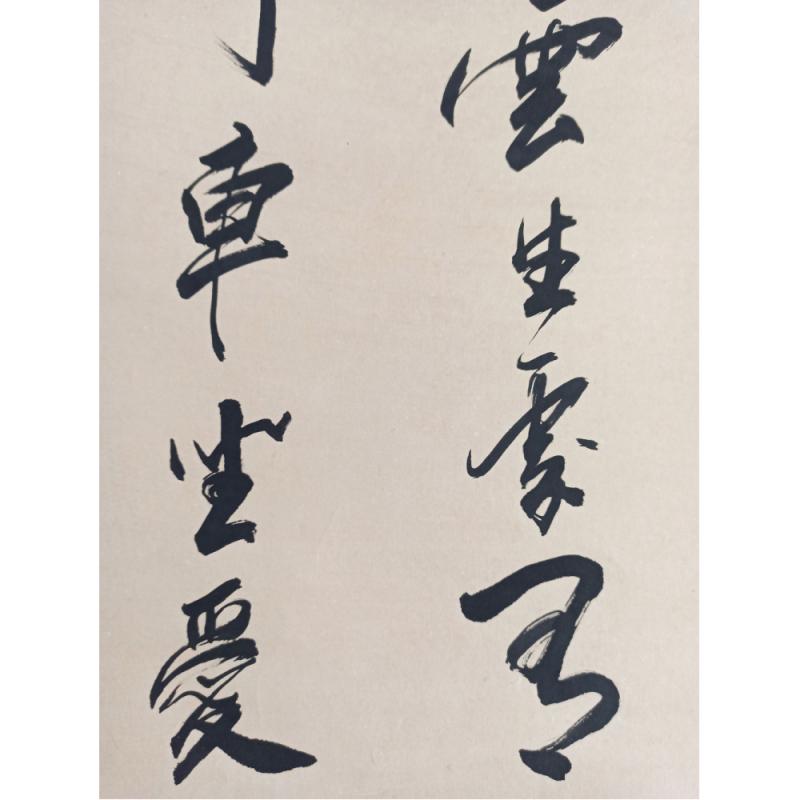 雲生處有
車坐愛